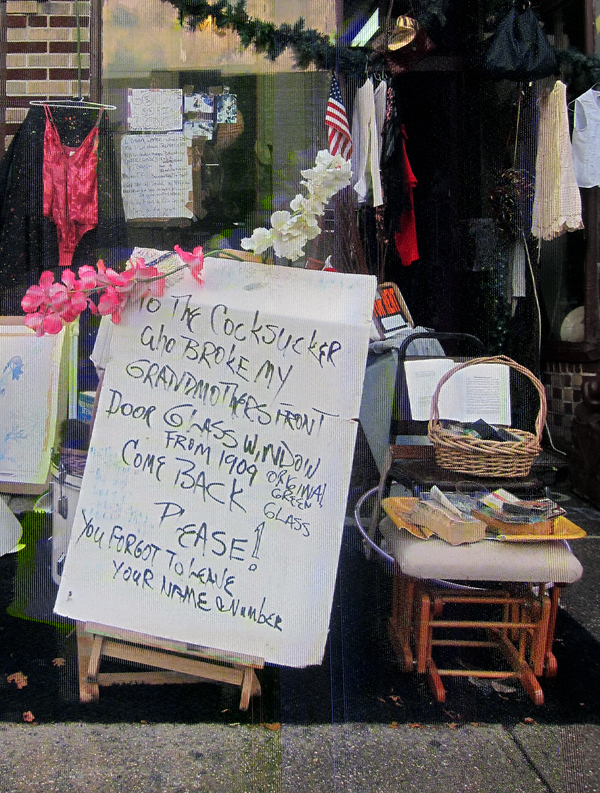 TO THE COCKSUCKER
WHO BROKE MY
GRANDMOTHERS FRONT
DOOR GLASS WINDOW
FROM 1909 ORIGINAL
GREEN
GLASS
COME BACK
PLEASE!
YOU FORGOT TO LEAVE
YOUR NAME & NUMBER